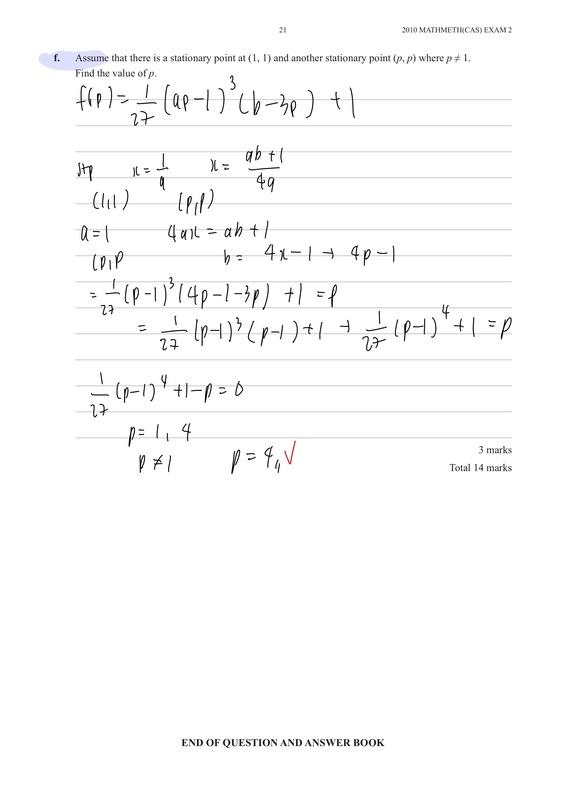 21 2010 MATHMETH(CAS) EXAM 2
f. Assume that there is a stationary point at (1, 1) and another stationary point (p, p) where p ≠ 1.
Find the value of p.
f(p) = 1/27 (ap-1)^3 (b-3p) + 1
stp x = 1/a x = (ab+1)/4a
(1,1) (p,p)
a=1 4ax = ab+1
(p,p b = 4x-1 → 4p-1
= 1/27 (p-1)^3 (4p-1-3p) + 1 = p
= 1/27 (p-1)^3 (p-1) + 1 → 1/27 (p-1)^4 + 1 = p
1/27 (p-1)^4 + 1-p = 0
p = 1, 4
p ≠ 1 p = 4,, ✓
3 marks
Total 14 marks
END OF QUESTION AND ANSWER BOOK